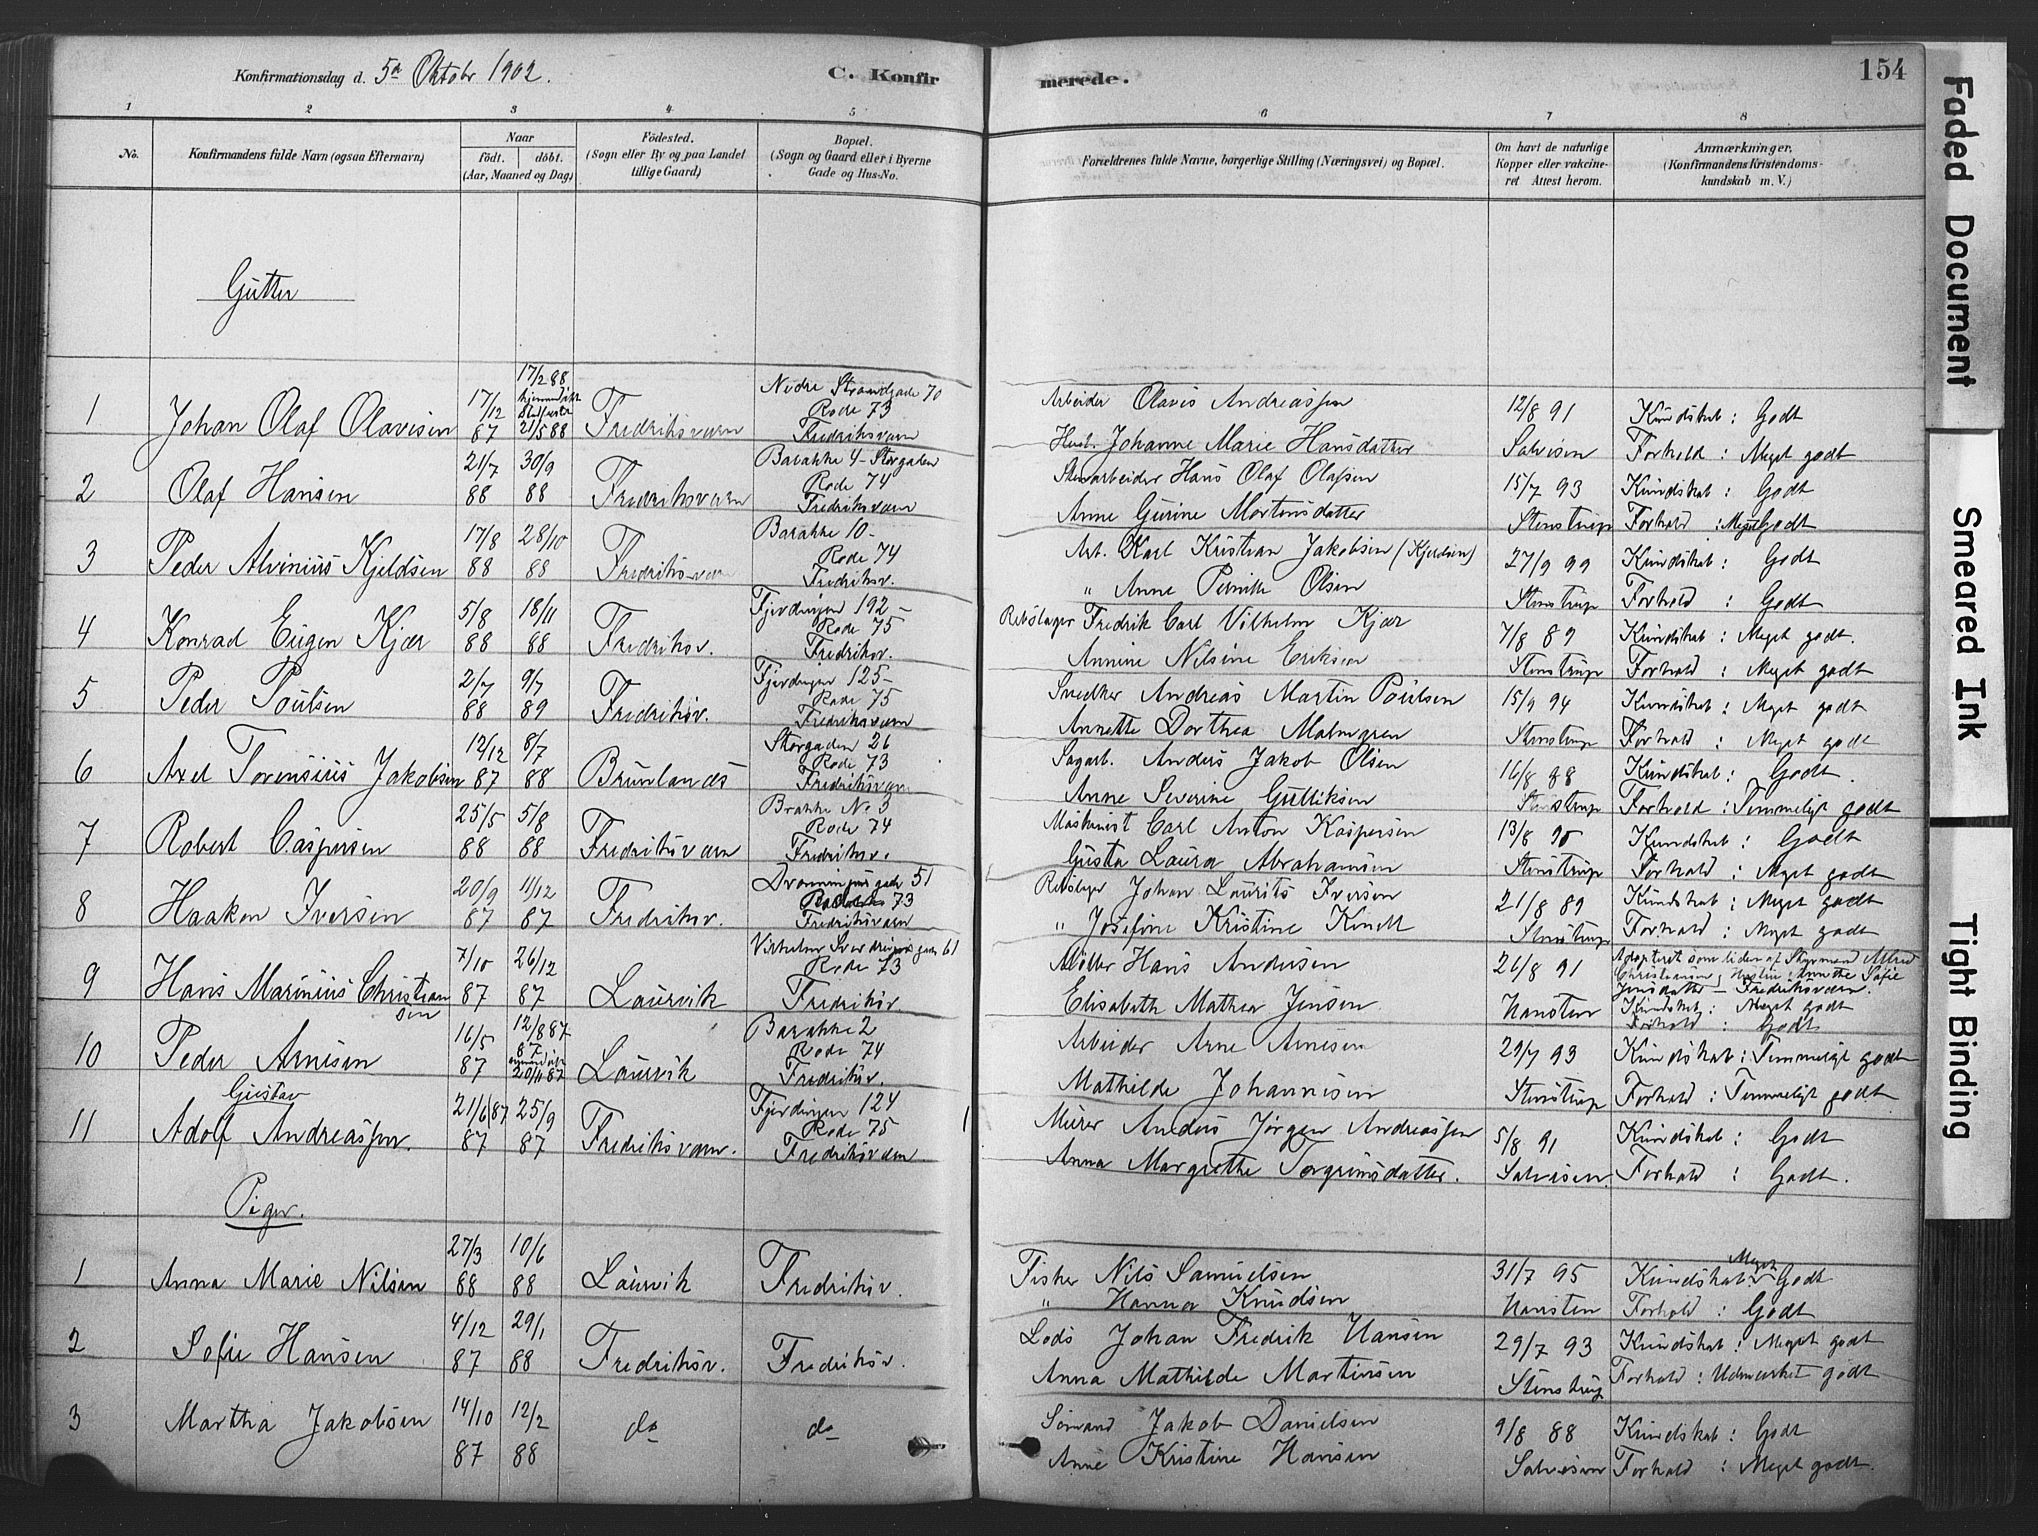 Konfirmationsdag d. 5te Oktobr 1902.
C. Konfir
merede.
154
1 2 3 4 5 6 7 8
No.
Konfirmandens fulde Navn (ogsaa Efternavn)
Naar
födt. döbt.
(Aar, Maaned og Dag)
Födested.
(Sogn eller By og paa Landet
tillige Gaard)
Bopæl.
(Sogn og Gaard eller i Byerne
Gade og Hus-No.
Forældrenes fulde Navne, borgerlige Stilling (Næringsvei) og Bopæl.
Om havt de naturlige
Kopper eller vakcine-
ret Attest herom.
Anmærkninger,
(Konfirmandens Kristendoms-
kundskab m. V.)
Gutter
1 Johan Olaf Olavisen
17/12 87
17/2 88
Stadfestet
21/5 88
Fredriksværn
Nedre Strandgade 70
Rode 73
Fredriksværn
Arbeider Olavis Andreassen
Hust. Johanne Marie Hansdatter
12/8 91
Salvesen
Kundskab: Godt
Forhold: Meget godt
2 Olaf Hansen
21/7 88
30/9 88
Fredriksværn
Barakke 4 - Storgaden
Rode 74
Fredriksværn
Stenarbeider Hans Olaf Olafsen
Anne Gurine Mortensdatter
15/7 93
Stenstrup
Kundskab: Godt
Forhold: Meget Godt
3 Peder Alvinius Kjeldsen
17/8 88
28/10 88
Fredriksværn
Barakke 10 -
Rode 74
Fredriksv.
Arb. Karl Kristian Jakobsen (Kjeldsen)
" Anne Pernille Olsen
27/9 99
Stenstrup
Kundskab: Godt
Forhold: Godt
4 Konrad Eugen Kjær
5/8 88
18/11 88
Fredriksv.
Fjerdingen 192 -
Rode 75
Fredriksv.
Rebslager Fredrik Carl Vilhelm Kjær
Annine Nilsine Eriksen
7/8 89
Stenstrup
Kundskab: Meget godt.
Forhold: Meget godt
5 Peder Poulsen
2/7 88
9/7 89
Fredriksv.
Fjerdingen 125 -
Rode 75
Fredriksværn
Snedker Andreas Martin Poulsen
Annette Dorthea Malmgren
15/9 94
Stenstrup
Kundskab: Meget godt
Forhold: Meget godt
6 Axel Torensius Jakobsen
12/12 87
8/7 88
Brunlanæs
Storgaden 26
Rode 73
Fredriksværn
Sagarb. Anders Jakob Olsen
Anne Severine Gulliksen
16/8 88
Stenstrup
Kundskab: Godt.
Forhold: Temmeligt godt
7 Robert Caspersen
25/5 88
5/8 88
Fredriksværn
Brakke No 3
Rode 74
Fredriksv.
Maskinist Carl Anton Kaspersen
Gusta Laura Abrahamsen
13/8 90
Stenstrup
Kundskab: Godt
Forhold: Meget godt
8 Haakon Iversen
20/9 87
11/12 87
Fredriksv.
Dronningens gade 51
Rode 73
Fredriksværn
Rebslager Johan Laurits Iversen
" Josefine Kristine
21/8 89
Stenstrup
Kundskab: Meget godt
Forhold: Meget godt
9 Hans Marinius Christian
sen
7/10 87
26/12 87
Laurvik
Vilhelm Sverdrups gade 61
Rode 73
Fredriksv.
Møller Hans Andersen
Elisabeth Mathea Jensen
26/8 91
Hansteen
Adopteret som liden af Styrmand Alfred
Christiansen, Hustru Annette Sofie
Jensdatter - Fredriksværn.
Kundskab: Meget godt
Forhold: Godt
10 Peder Arnesen
16/5 87
12/8 87
20/11 87
Laurvik
Barakke 2
Rode 74
Fredriksv.
Arbeider Arne Arnesen
Mathilde Johannesen
29/7 93
Stenstrup
Kundskab: Temmeligt godt
Forhold: Temmeligt godt
Gustav
11 Adolf Andreassen.
21/6 87
87
25/9 87
Fredriksværn.
Fjerdingen 124
Rode 75
Fredriksværn
Murer Anders Jørgen Andreassen
Anna Margrethe Torgrimsdatter.
5/8 91
Salvesen.
Kundskab: Godt
Forhold: Godt.
Piger.
1 Anna Marie Nilsen
27/3 88
10/6 88
Laurvik
Fredriksv.
Fisker Nils Samuelsen
" Hanna Knudsen
31/7 95
Hansteen
Kundskab: Meget Godt
Forhold: Godt
2 Sofie Hansen
4/12 87
29/1 88
Fredriksv.
Fredriksv.
Lods Johan Fredrik Hansen
Anna Mathilde Martinsen
29/7 93
Stenstrup
Kundskab: Meget godt
Forhold: Udmærket godt
3 Martha Jakobsen
14/10 87
12/2 88
do
do
Sømand Jakob Danielsen
Anne Kristine Hansen
9/8 88
Salvesen
Kundskab: Godt
Forhold: Meget godt.
Faded Document
Smeared Ink
Tight Binding